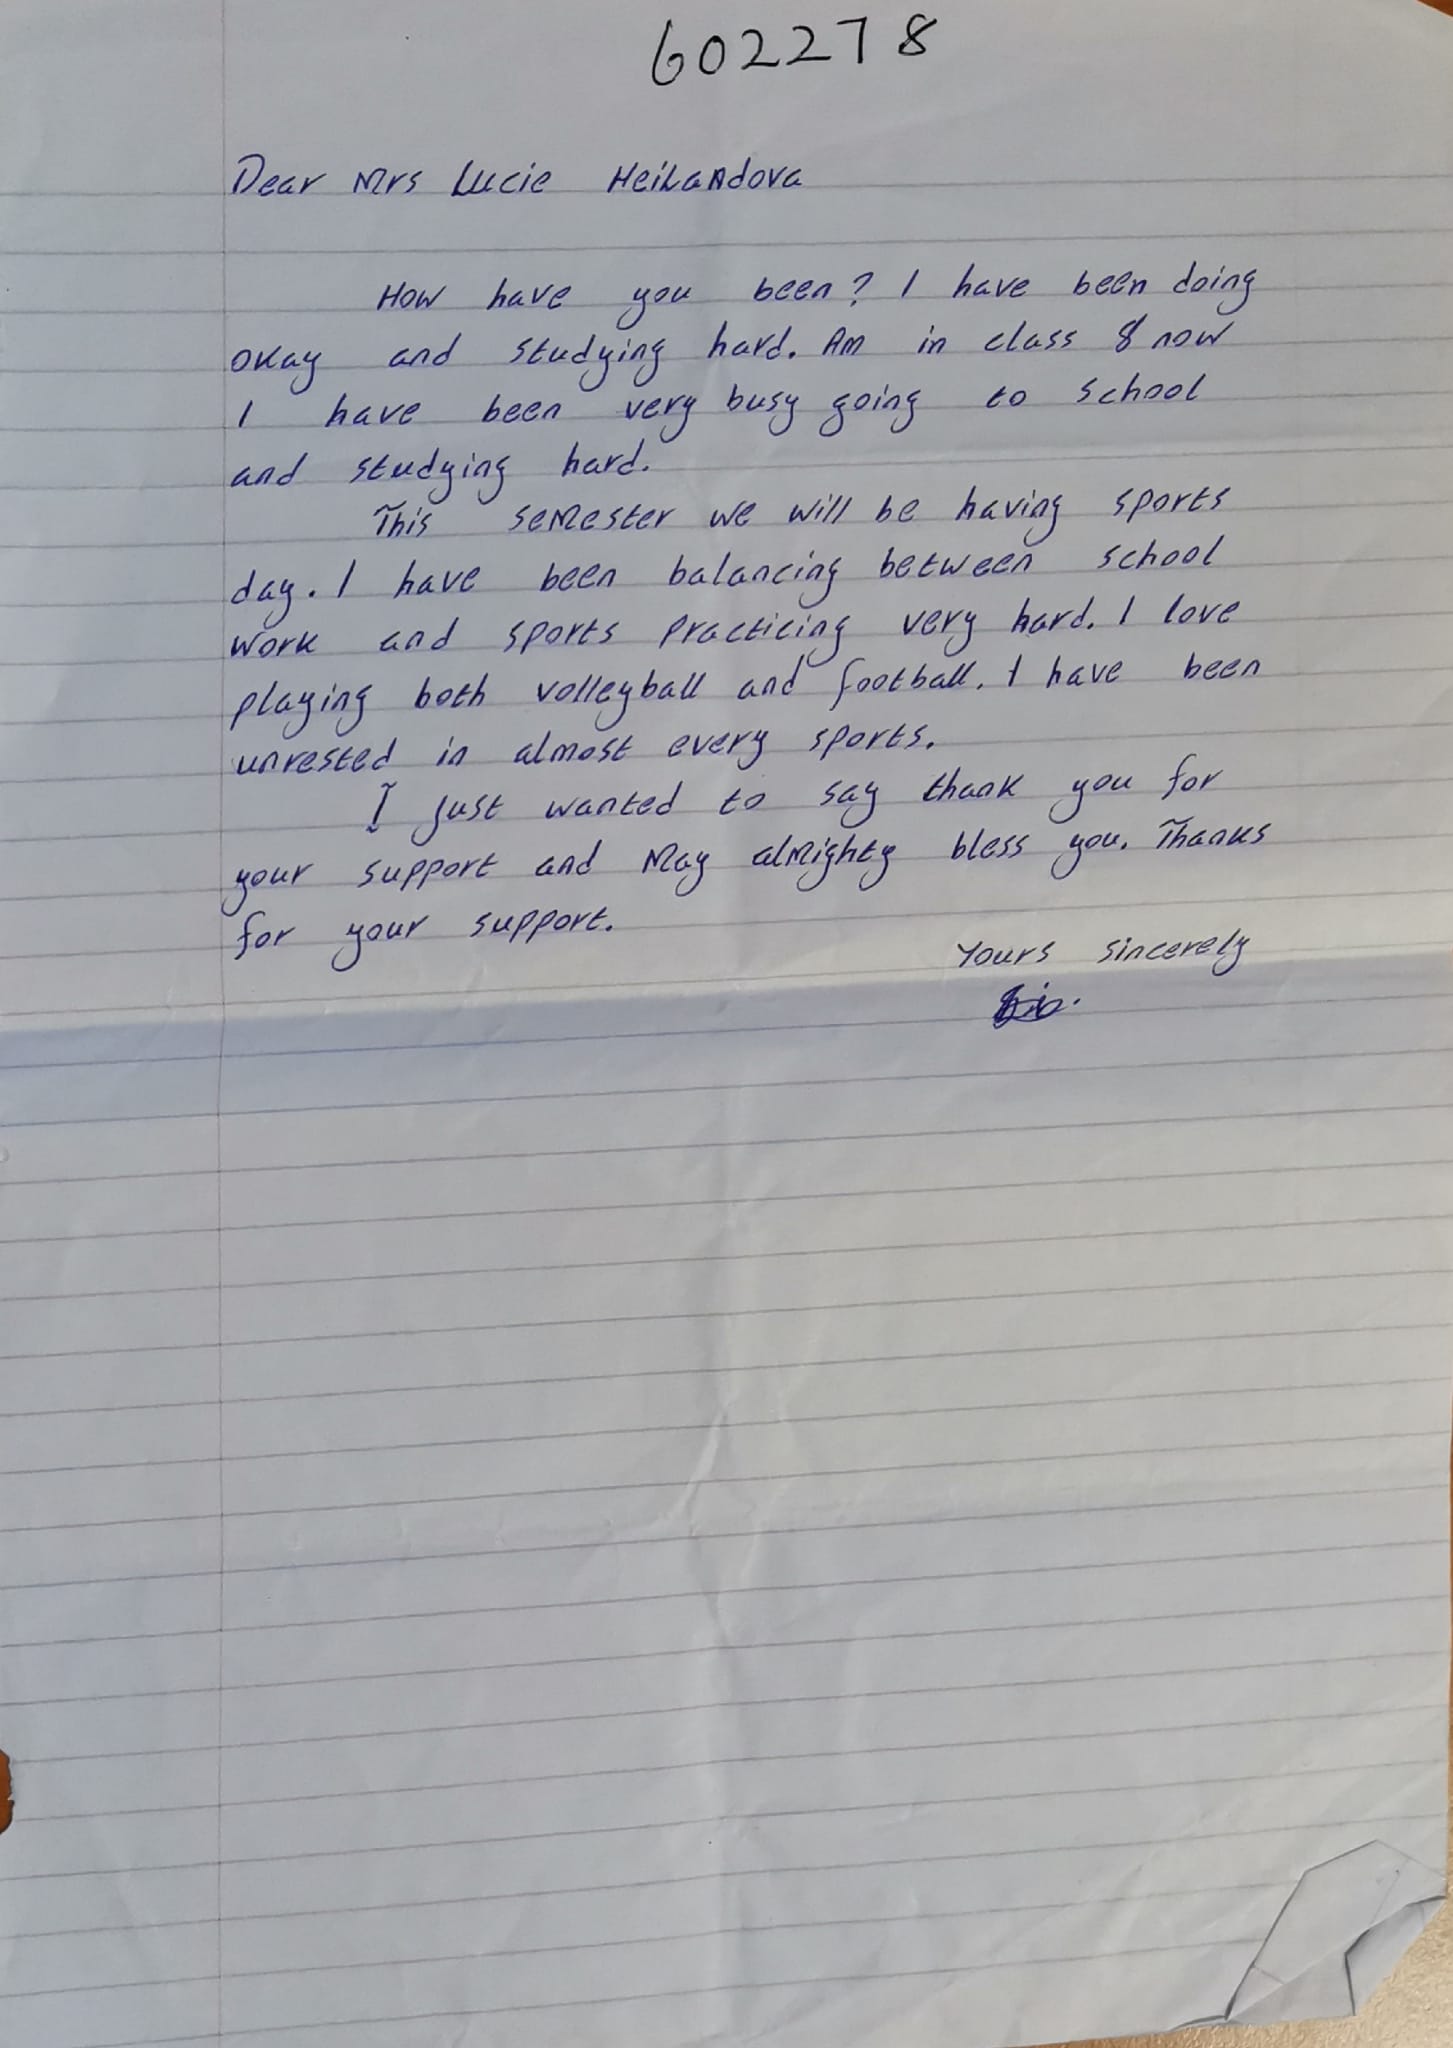 602278
Dear Mrs Lucie Heilandova
How have you been? I have been doing
okay and studying hard. Am in class 8 now
I have been very busy going to school
and studying hard.
This semester we will be having sports
day. I have been balancing between school
work and sports practicing very hard. I love
playing both volleyball and football. I have been
unrested in almost every sports.
I just wanted to say thank you for
your support and may almighty bless you. Thanks
for your support.
Yours sincerely